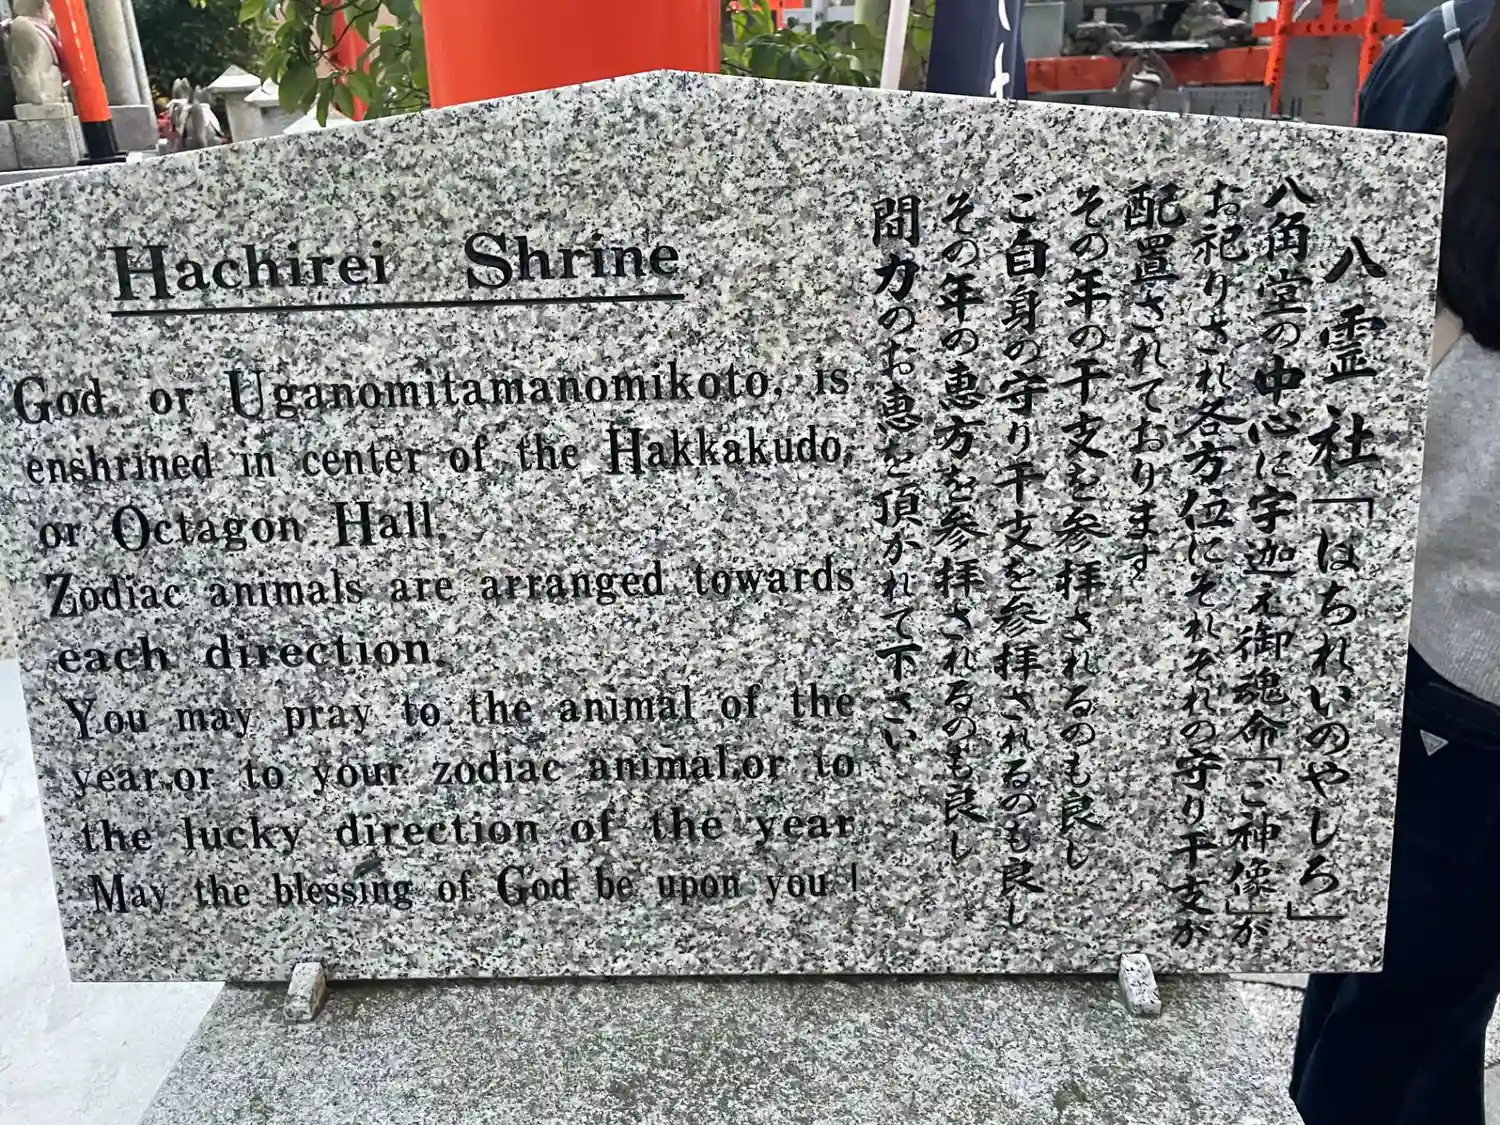 Hachirei Shrine
God, or Uganomitamanomikoto, is
enshrined in center of the Hakkakudo,
or Octagon Hall.
Zodiac animals are arranged towards
each direction.
You may pray to the animal of the
year,or to your zodiac animal,or to
the lucky direction of the year
May the blessing of God be upon you !
八霊社「はちれいのやしろ」
八角堂の中心に宇迦之御魂命「ご神像」が
お祀りされ各方位にそれぞれの守り干支が
配置されております
その年の干支を参拝されるのも良し
ご自身の守り干支を参拝されるのも良し
その年の恵方を参拝されるのも良し
間力のお恵を頂かれて下さい